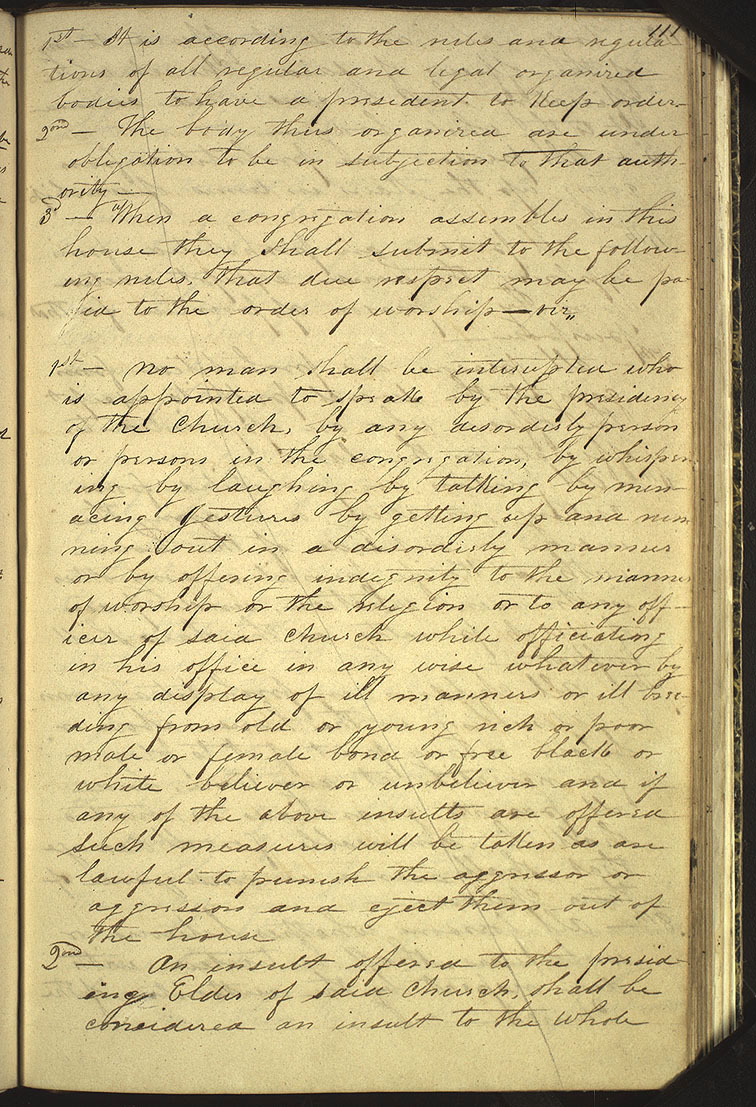 111
1st— It is according to the rules and regula-
tions of all regular and legal organized
bodies to have a president to keep order.
2ond— The body thus organized are under
obligation to be in subjection to that auth-
ority—
3d— When a congregation assembles in this
house they shall submit to the follow-
ing rules, that due respect may be pa-
jid to the order of worship—viz,,
1st— no man shall be interupted who
is appointed to speak by the presidency
of the Church, by any disorderly person
or persons in the congregation, by whisper-
ing by laughing by talking by men-
acing Jestures by getting up and run
ning out in a disorderly manner
or by offering indignity to the manner
of worship or the religion or to any off-
icer of said church while officiating
in his office in any wise whatever by
any display of ill manners or ill bree-
ding from old or young rich or poor
male or female bond or free black or
white believer or unbeliever and if
any of the above insults are offered
such measures will be taken as are
lawful to punish the aggressor or
aggressors and eject them out of
the house
2ond— An insult offered to the presid-
ing Elder of said Church, shall be
considered an insult to the whole